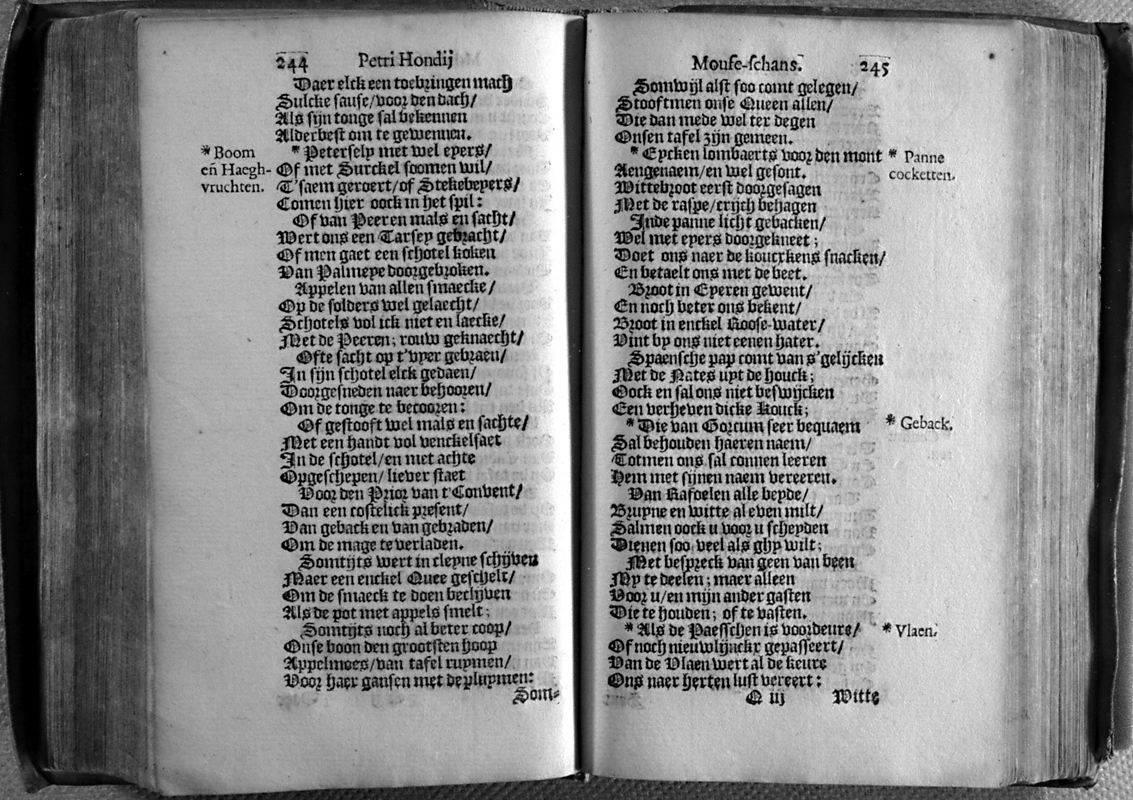 244 Petri Hondij
Daer elck een toebringen mach
Sulcke sause/voor den dach/
Als sijn tonge sal bekennen
Alderbest om te gewennen.
* Boom
en̄ Haegh-
vruchten.
* Petersely met wel eyers/
Of met Surckel soomen wil/
T'saem geroert/of Stekebeyers/
Comen hier oock in het spil:
Of van Peeren mals en sacht/
Wert ons een Tarsey gebracht/
Of men gaet een schotel koken
Van Palmeye doorgebroken.
Appelen van allen smaecke/
Op de solders wel gelaecht/
Schotels vol ick niet en laecke/
Met de Peeren; rouw geknaecht/
Ofte sacht op t'vyer gebraen/
In sijn schotel elck gedaen/
Doorgesneden naer behooren/
Om de tonge te becooren:
Of gestooft wel mals en sachte/
Met een handt vol venckelsaet
In de schotel/en niet achte
Opgeschepen/liever staet
Voor den Prior van t'Convent/
Dan een costelick present/
Van geback en van gebraden/
Om de mage te verladen.
Somtijts wert in cleyne schijven
Maer een enckel Quee geschelt/
Om de smaeck te doen beclijven
Als de pot met appels smelt;
Somtijts noch al beter coop/
Onse boon den grootsten hoop
Appelmoes/van tafel ruymen/
Voor haer gansen met de pluymen:
Som-
Mouse-schans. 245
Somwijl alst soo comt gelegen/
Stooftmen onse Queen allen/
Die dan mede wel ter degen
Onsen tafel zijn gemeen.
* Eycken lombaerts voor den mont
* Panne
cocketten.
Aengenaem/en wel gesont.
Wittebroot eerst doorgesagen
Met de raspe/crijch behagen
Inde panne licht gebacken/
Wel met eyers doorgekneet;
Doet ons naer de koucxkens snacken/
En betaelt ons met de beet.
Broot in Eyeren gewent/
En noch beter ons bekent/
Broot in enckel Roose-water/
Vint by ons niet eenen hater.
Spaensche pap comt van s'gelijcken
Met de Nates uyt de houck;
Oock en sal ons niet beswijcken
Een verheven dicke Kouck;
* Die van Gorcum seer bequaem
* Geback.
Sal behouden haeren naem/
Totmen ons sal connen leeren
Hem met sijnen naem vereeren.
Van Rafoelen alle beyde/
Bruyne en witte al even milt/
Salmen oock u voor u scheyden
Dienen soo veel als ghy wilt;
Met bespreck van geen van been
My te deelen; maer alleen
Voor u/en mijn ander gasten
Die te houden; of te vasten.
* Als de Paesschen is voordeure/
* Vlaen.
Of noch nieuwlijnckx gepasseert/
Van de Vlaen wert al de keure
Ons naer herten lust vereert:
Q iij Witte